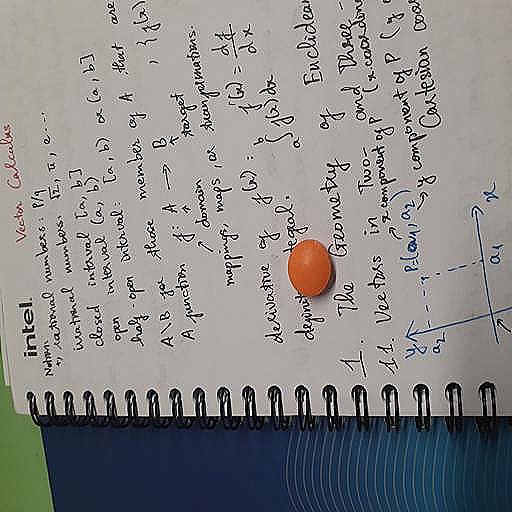 Vector Calculus
intel.
rational numbers: p/q
irrational numbers: √2, π, e ...
closed interval [a, b]
open interval (a, b)
half-open interval: [a, b) or (a, b]
A\B for those member of A that are
A function f: A → B , {f(x)
domain target
mappings, maps or transformations.
derivative of f(x): f'(x) = df/dx
integral. ∫ₐᵇ f(x)dx
1. The Geometry of Euclidean
1.1. Vectors in Two- and Three-
x component of P (x coordin
P=(a1, a2)
y component of P (y
Cartesian
y
a2
a1
x